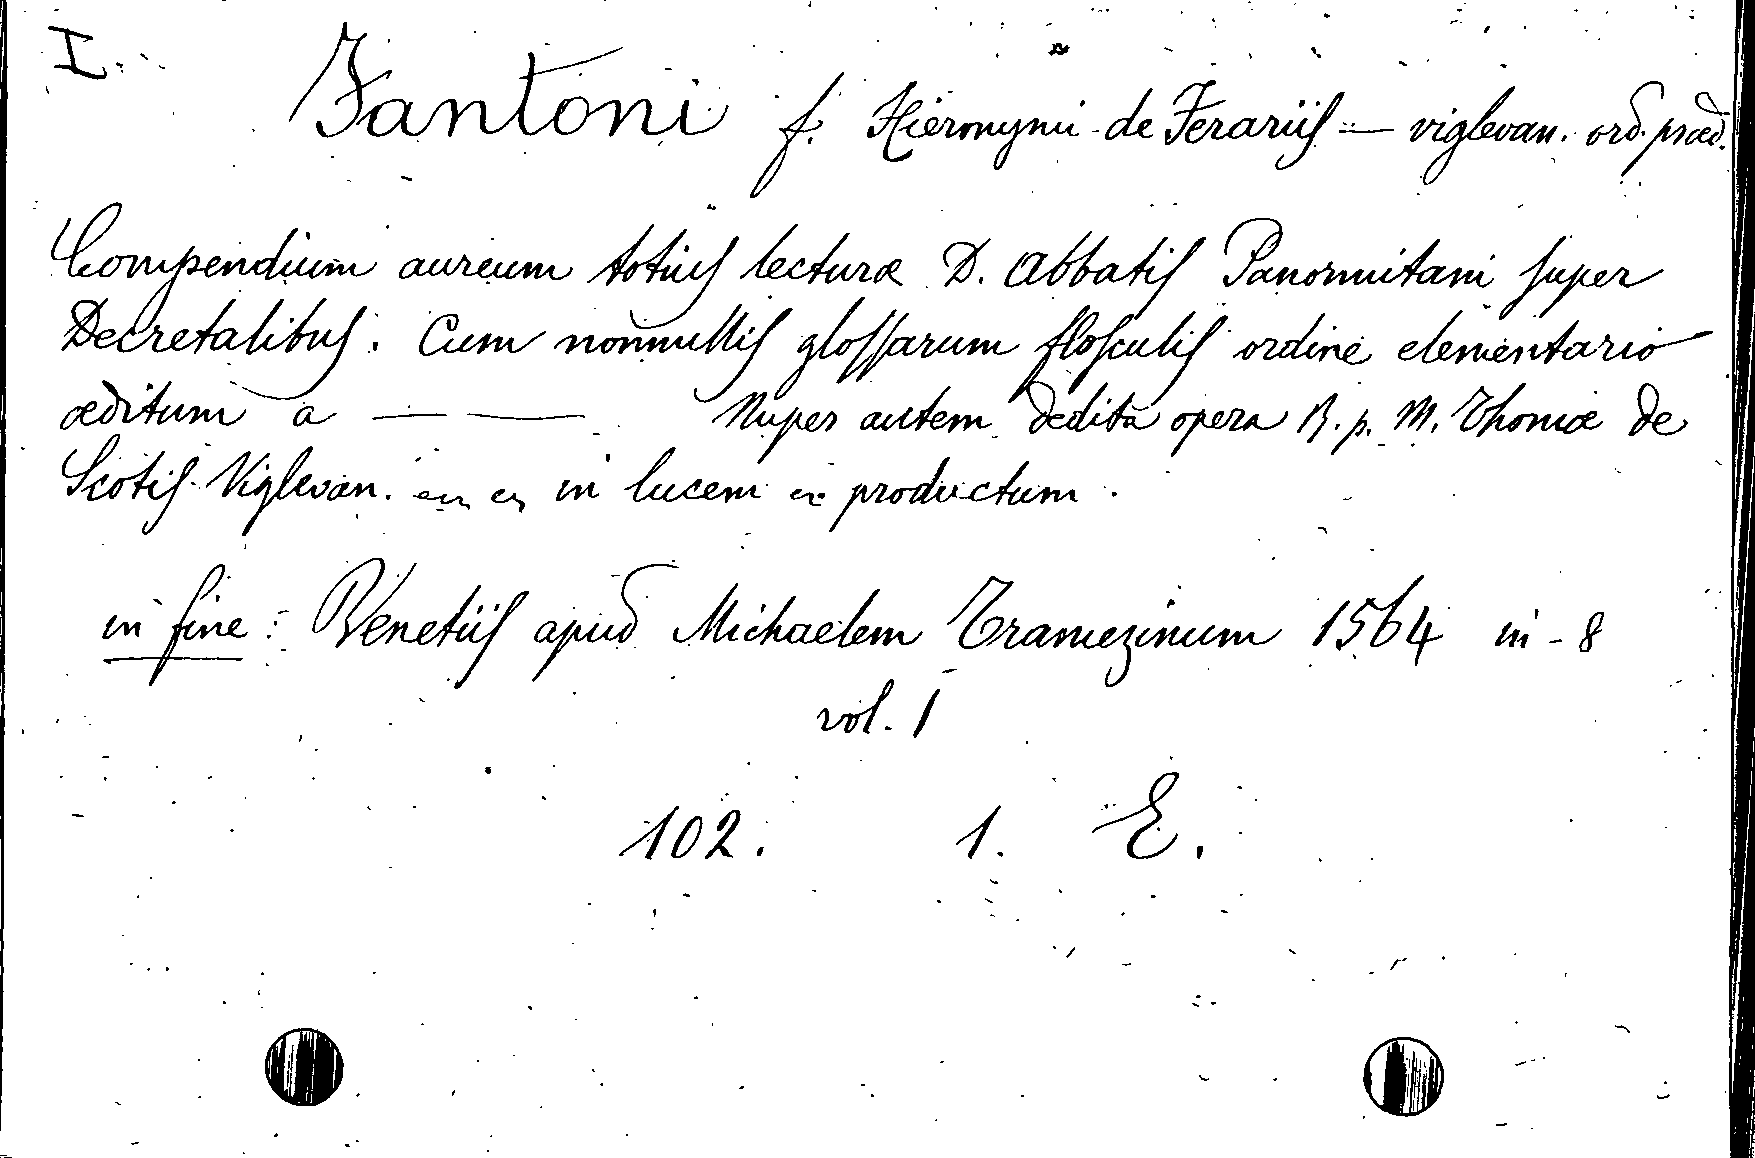 I.
Fantoni f. Hieronymi de Ferariis — viglevan. ord. præd.
Compendium aureum totius lecturæ D. Abbatis Panormitani super
Decretalibus. Cum nonnullis glossarum flosculis ordine elementario
æditum a — — Nuper autem dedita opera R. p. M. Thomæ de
Scotis Viglevan. in lucem productum.
in fine: Venetiis apud Michaelem Tramezinum 1564 in-8
vol. 1
102. 1. E.